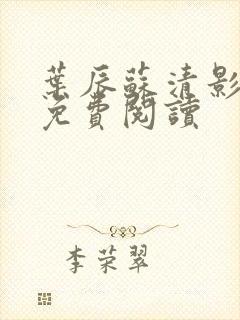 葉辰蘇清影
免費閱讀
李荣翠